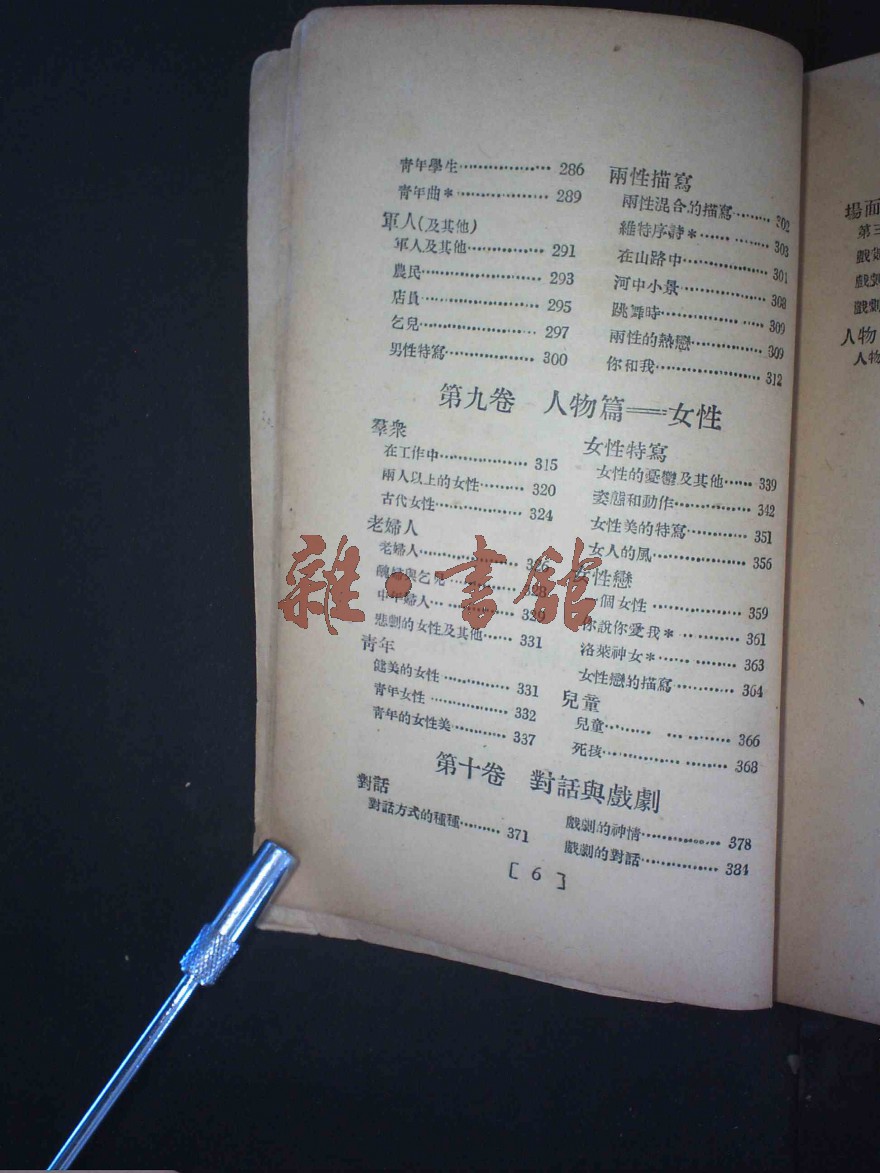 青年學生………………… 286
青年曲*………………… 289
軍人(及其他)
軍人及其他……………… 291
農民……………………… 293
店員……………………… 295
乞兒……………………… 297
男性特寫………………… 300
兩性描寫
兩性混合的描寫……… 302
維特序詩*…… ……… 303
在山路中……………… 301
河中小景……………… 308
跳舞時……………… … 309
兩性的熱戀…………… 309
你和我………………… 312
第九卷 人物篇——女性
羣衆
在工作中……………… 315
兩人以上的女性……… 320
古代女性……………… 324
老婦人
老婦人………………… 326
醜婦與乞兒…………… 328
中年婦人… ………… 329
悲劇的女性及其他…… 331
青年
健美的女性…………… 331
青年女性……………… 332
青年的女性美………… 337
女性特寫
女性的憂鬱及其他…… 339
姿態和動作…………… 342
女性美的特寫………… 351
女人的風……………… 356
女性戀
一個女性……………… 359
你說你愛我*… ……… 361
洛萊神女*…… ……… 363
女性戀的描寫………… 364
兒童
兒童……… … ……… 366
死孩…………… ……… 368
第十卷 對話與戲劇
對話
對話方式的種種……… 371
戲劇的神情…………… 378
戲劇的對話…………… 384
[ 6 ]
場面
第三
人物
人物
雜·書館